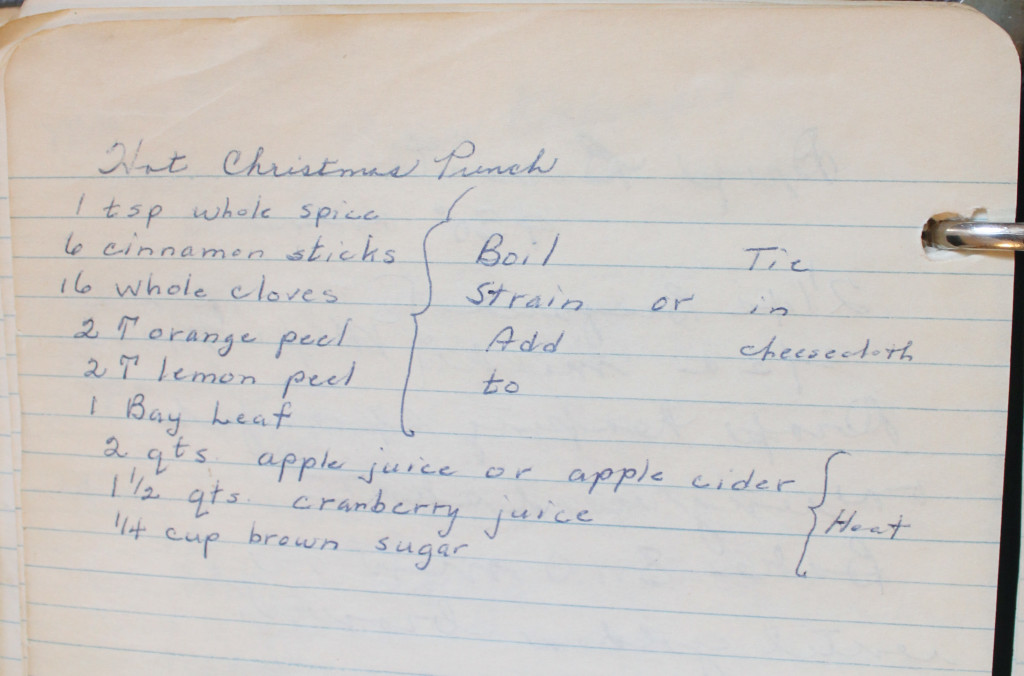 Hot Christmas Punch
1 tsp whole spice
6 cinnamon sticks
16 whole cloves
2 T orange peel
2 T lemon peel
1 Bay Leaf
Boil
Strain or
Add
to
Tie
in
cheesecloth
2 qts. apple juice or apple cider
1 1/2 qts. cranberry juice
1/4 cup brown sugar
Heat